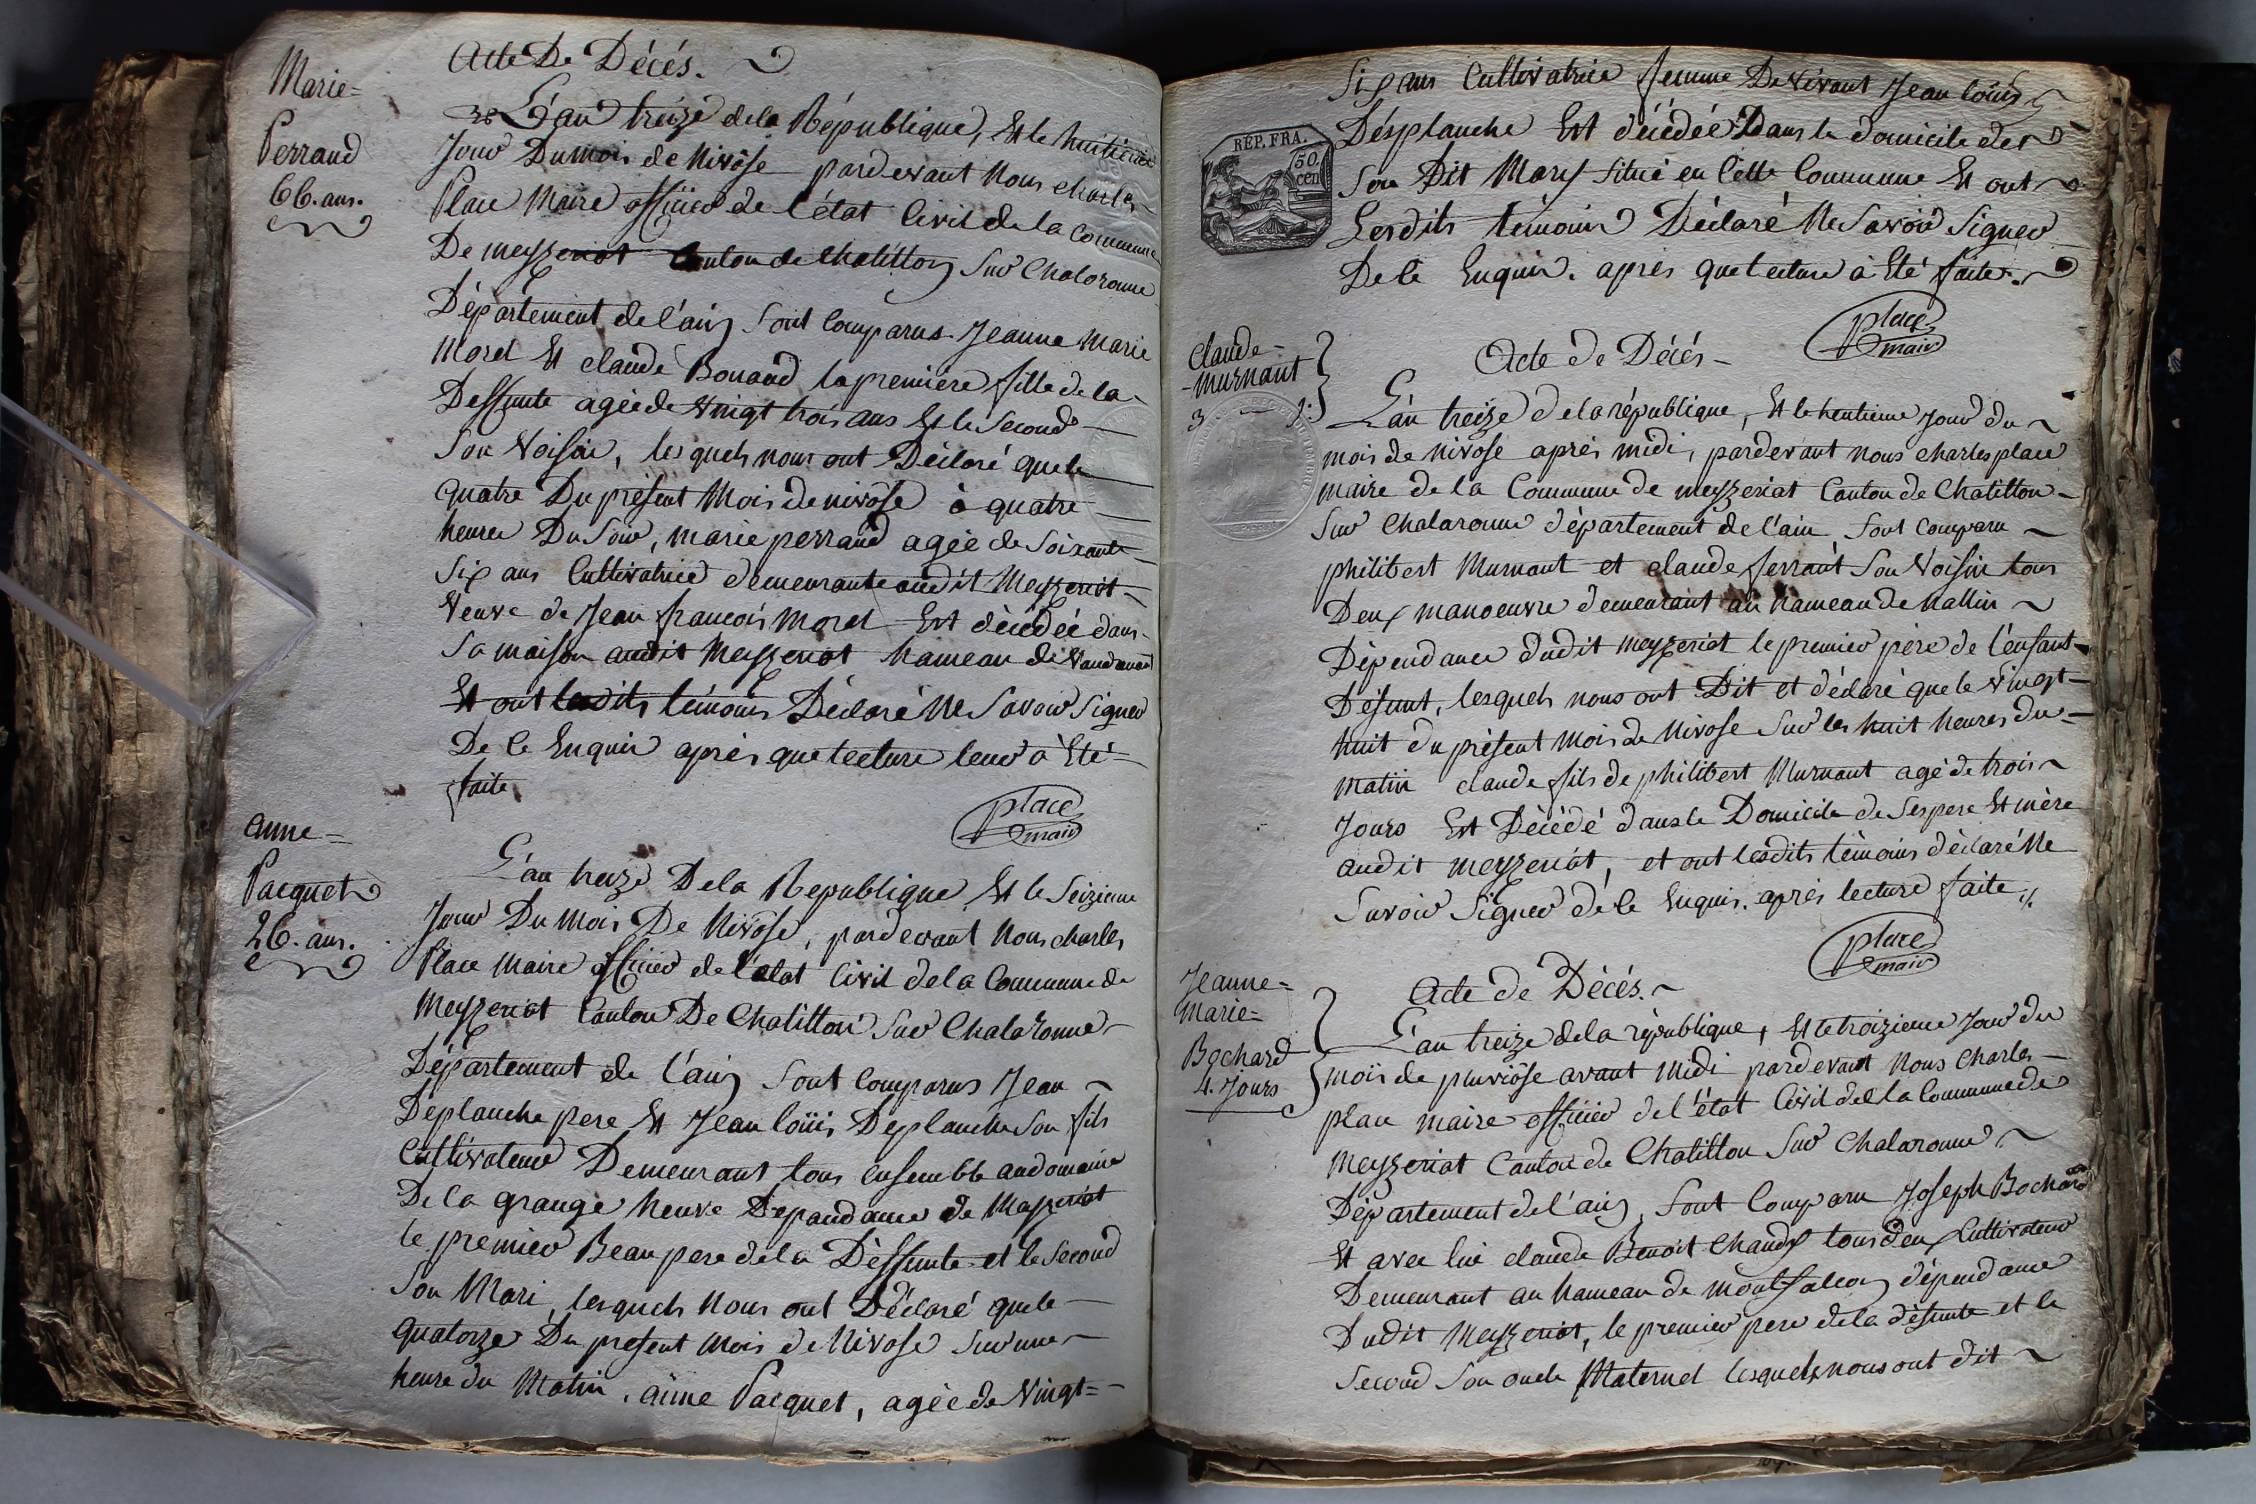 Marie=
Perraud
66. ans.
Acte De Décés.
L'an treize de la République, Et le huitieme
Jour Du mois de Nivôse pardevant Nous charles
Place Maire officier de l'état Civil de la Commune
De meyzeriat Canton de Chatillon Sur Chalaronne
Département de l'ain Sont Comparus Jeanne Marie
Morel Et claude Bouaud la première fille de la
Deffunte agée de Vingt trois ans Et le Second
Son Voisin, lesquels nous ont Déclaré que le
quatre Du présent Mois de nivôse à quatre
heures Du Soir, marie perraud agée de Soixante
Six ans Cultivatrice demeurante audit Meyzeriat
Veuve de Jean francois Morel Est décédée dans
Sa maison audit Meyzeriat hameau de
Et ont lesdits témoins Déclaré Ne Savoir Signer
De Ce Enquis après que lecture leur à Eté
faite
place
maire
anne=
Pacquet
26. ans.
L'an treize De la République Et le Seizieme
Jour Du Mois De Nivôse, pardevant Nous charles
Place Maire officier de l'état Civil de la Commune de
Meyzeriat Canton De Chatillon Sur Chalaronne
Département de l'ain Sont Comparus Jean
Deplanche pere Et Jean loüis Deplanche Son fils
Cultivateur Demeurant tous ensemble au domaine
De la grange Neuve Dependance de Mayzeriat
le premier Beau pere de la Deffunte et le Second
Son Mari, lesquels Nous ont Déclaré que le
quatorze Du present Mois de Nivose Sur une
heure du Matin, anne Pacquet, agée de Vingt=
REP. FRA.
50.
cen
Six ans Cultivatrice femme De Vivant Jean loüis
Désplanche Est décédée Dans le domicile de
Son Dit Mary Situé en Cette Commune Et ont
Lesdits témoins Déclaré Ne Savoir Signer
De Ce Enquis. après que lecture à Eté faite.
place
maire
Claude=
-Murnant
3 j.
Acte de Décés-
L'an treize de la république, Et le trentieme Jour du
mois de nivose après midi, pardevant nous charles place
maire de la Commune de meyzeriat Canton de Chatillon
Sur Chalaronne département de l'ain Sont comparu
philibert Murnant et claude ferrant Son Voisin tous
Deux manoeuvre demeurant au hameau de
Dépendance dudit meyzeriat le premier père de l'enfant
Défunt, lesquels nous ont Dit et déclaré que le Vingt-
huit du présent Mois de Nivose Sur les huit heures du
matin claude fils de philibert Murnant agé de trois
Jours Est Décédé dans le Domicile de Ses pere Et mère
audit meyzeriat, et ont lesdits témoins déclaré Ne
Savoir Signer de Ce Enquis. après lecture faite
place
maire
Jeanne=
Marie=
Bochard
4. Jours
Acte de Décés.
L'an treize de la république, Et le troizieme Jour du
mois de pluviôse avant Midi pardevant Nous Charles
place maire officier de l'état Civil de la Commune de
Meyzeriat Canton de Chatillon Sur Chalaronne
Département de l'ain, Sont Comparu Joseph Bochard
Et avec lui claude Benoit Chaudy tous deux Cultivateur
Demeurant au hameau de montfalcon dépendance
Dudit Meyzeriat, le premier pere de la défunte et le
Second Son oncle Maternel lesquels nous ont dit